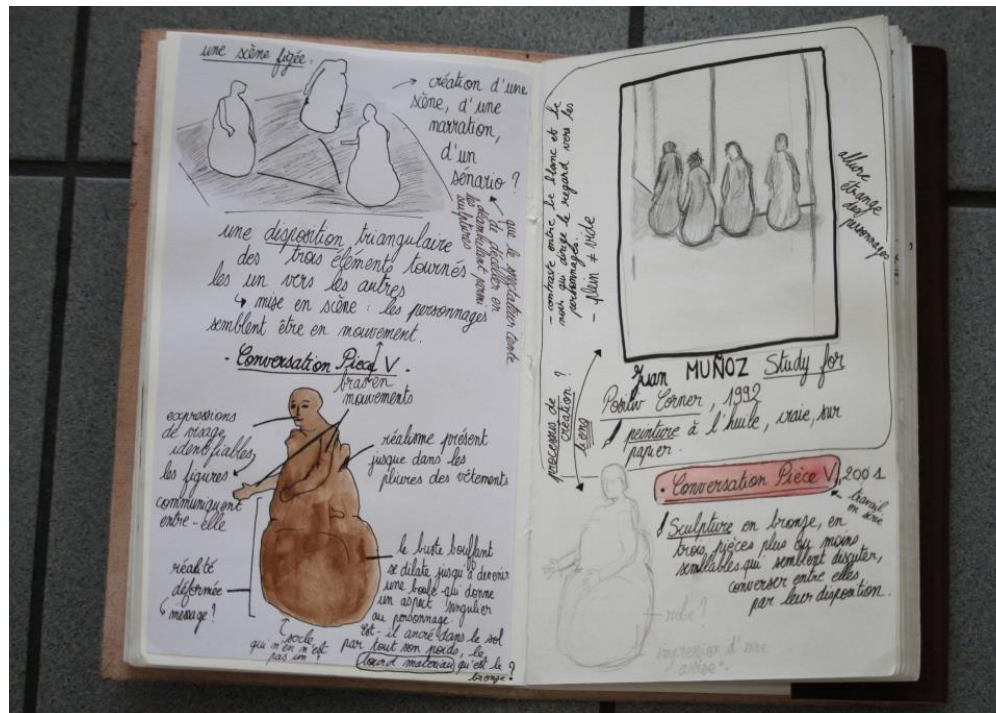 une scène figée.
→ création d'une
scène, d'une
narration,
d'un
sénario ?
que le spectateur
de déceller en
déambulant parmi
les sculptures
une disposition triangulaire
des trois éléments tournés
les un vers les autres
↳ mise en scène : les personnages
semblent être en mouvement.
- Conversation Pièce V -
bras en
mouvements
expressions
de visage
identifiables
les figures
communiquent
entre-elle
réalisme présent
jusque dans les
pliures des vêtements
réalité
déformée
↳ message ?
le buste bouffant
se dilate jusqu'à devenir
une boule qui donne
un aspect singulier
au personnage.
Est-il ancré dans le sol
par tout son poids, le
lourd matériau qu'est le
bronze ?
socle
qui n'en n'est
pas un ?
- contraste entre le blanc et le
noir qui dirige le regard vers les
personnages.
- plein ≠ vide
allure
étrange
des
personnages
Juan MUÑOZ Study for
Positiv Corner, 1992
peinture à l'huile, craie, sur
papier.
processus de
création ?
long
• Conversation Pièce V, 2001
travail
en série
Sculpture en bronze, en
trois pièces plus ou moins
semblables qui semblent discuter,
converser entre elles
par leur disposition.
robe ?
impression d'une
assise